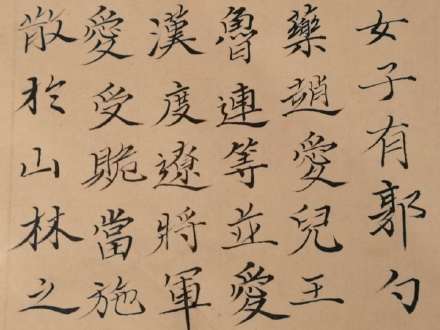 女子有郭勺
藥趙愛兒王
魯連等並愛
漢度遼將軍
愛受貤當施
散於山林之